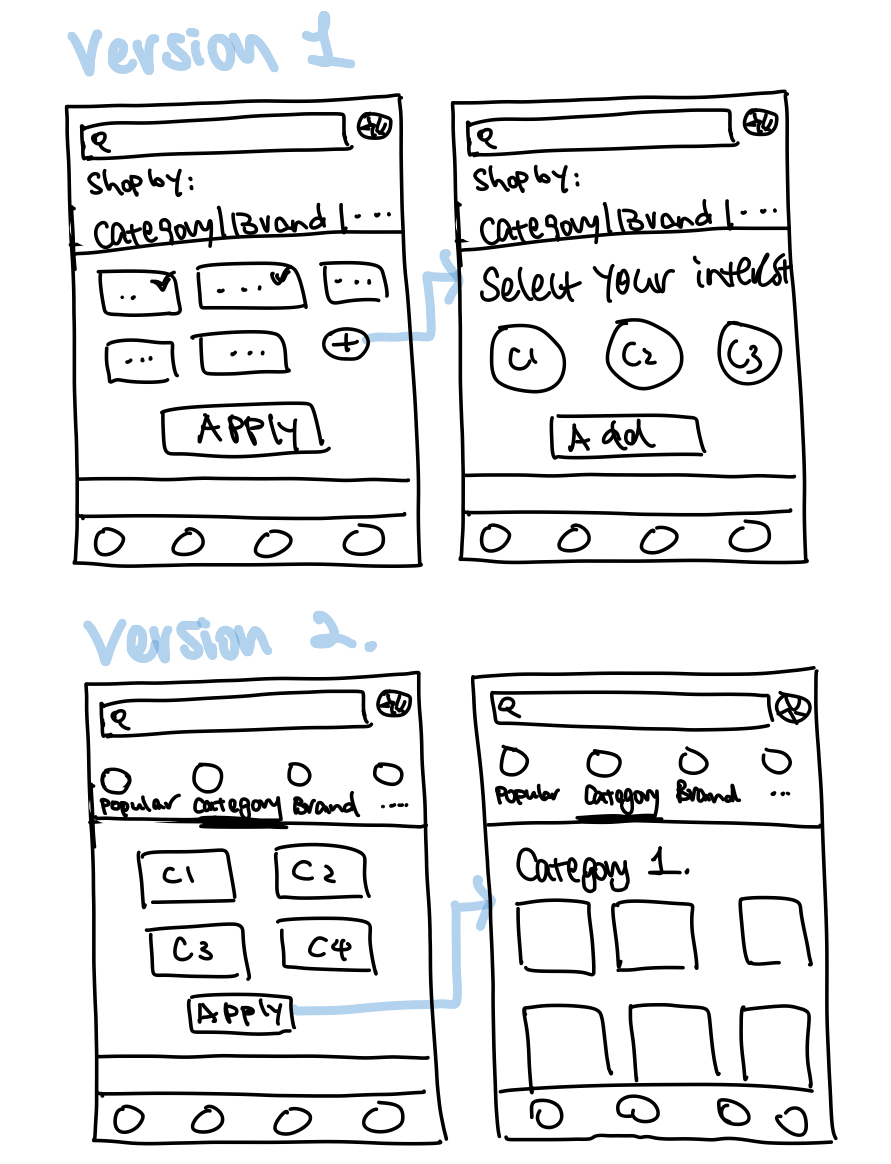 Version 1
Shop by:
Category | Brand | ...
.. ... ...
... ...
+
Apply
Shop by:
Category | Brand | ...
Select Your interest
C1 C2 C3
Add
Version 2.
Popular Category Brand ....
C1 C2
C3 C4
Apply
Popular Category Brand ...
Category 1.